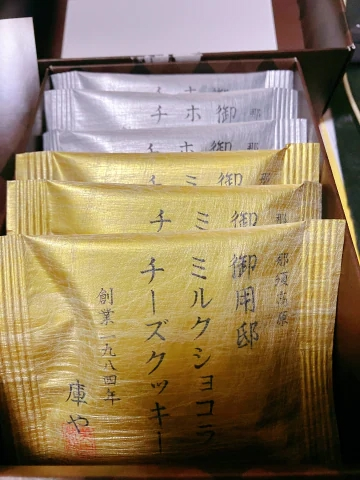 御
ホ
チ
那
御
ホ
チ
那
御
ホ
チ
那
御
ミ
チ
那
御
ミ
チ
那須高原
御用邸
ミルクショコラ
チーズクッキー
創業一九八四年
庫や